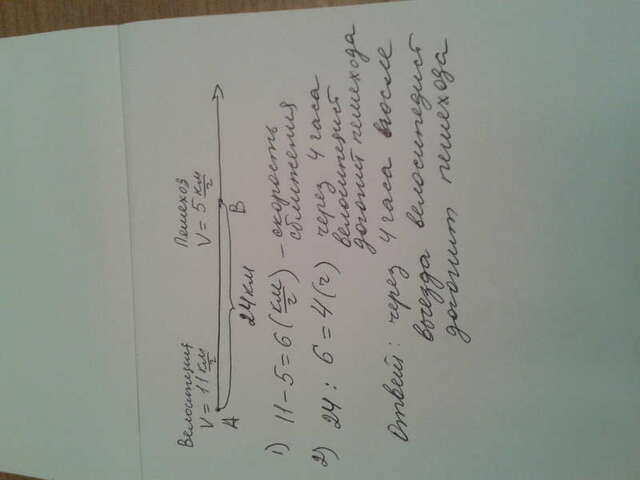 Велосипедист Пешеход
V = 11 км/ч V = 5 км/ч
A B
24 км
1) 11 - 5 = 6 (км/ч) - скорость
сближения
2) 24 : 6 = 4 (ч) через 4 часа
велосипедист
догонит пешехода
Ответ: через 4 часа после
выезда велосипедист
догонит пешехода